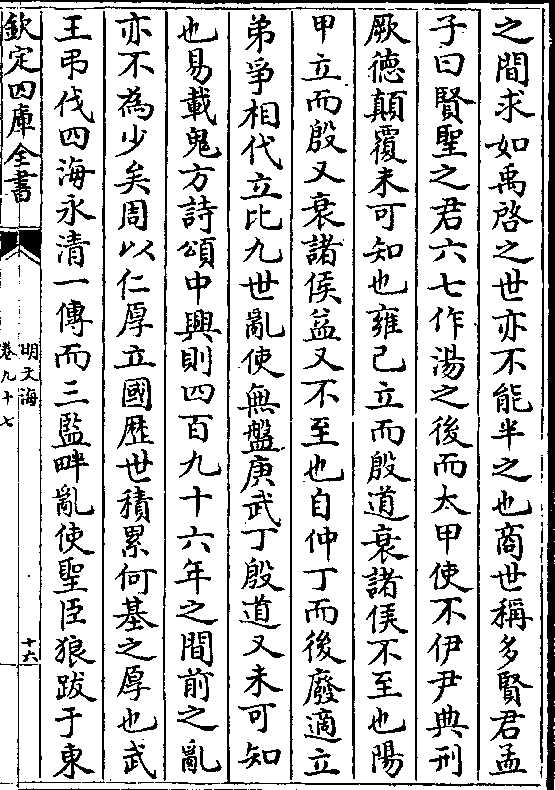 之間求如禹啓之世亦不能半之也商世稱多賢君孟
子曰賢聖之君六七作湯之後而太甲使不伊尹典刑
厥徳顛覆未可知也雍己立而殷道衰諸侯不至也陽
甲立而殷又衰諸侯益又不至也自仲丁而後廢適立
弟爭相代立比九世亂使無盤庚武丁殷道又未可知
也易載鬼方詩頌中興則四百九十六年之間前之亂
亦不為少矣周以仁厚立國歴世積累何基之厚也武
王弔伐四海永清一傳而三監畔亂使聖臣狼跋于東
欽定四庫全書
明文海
卷九十七
十六